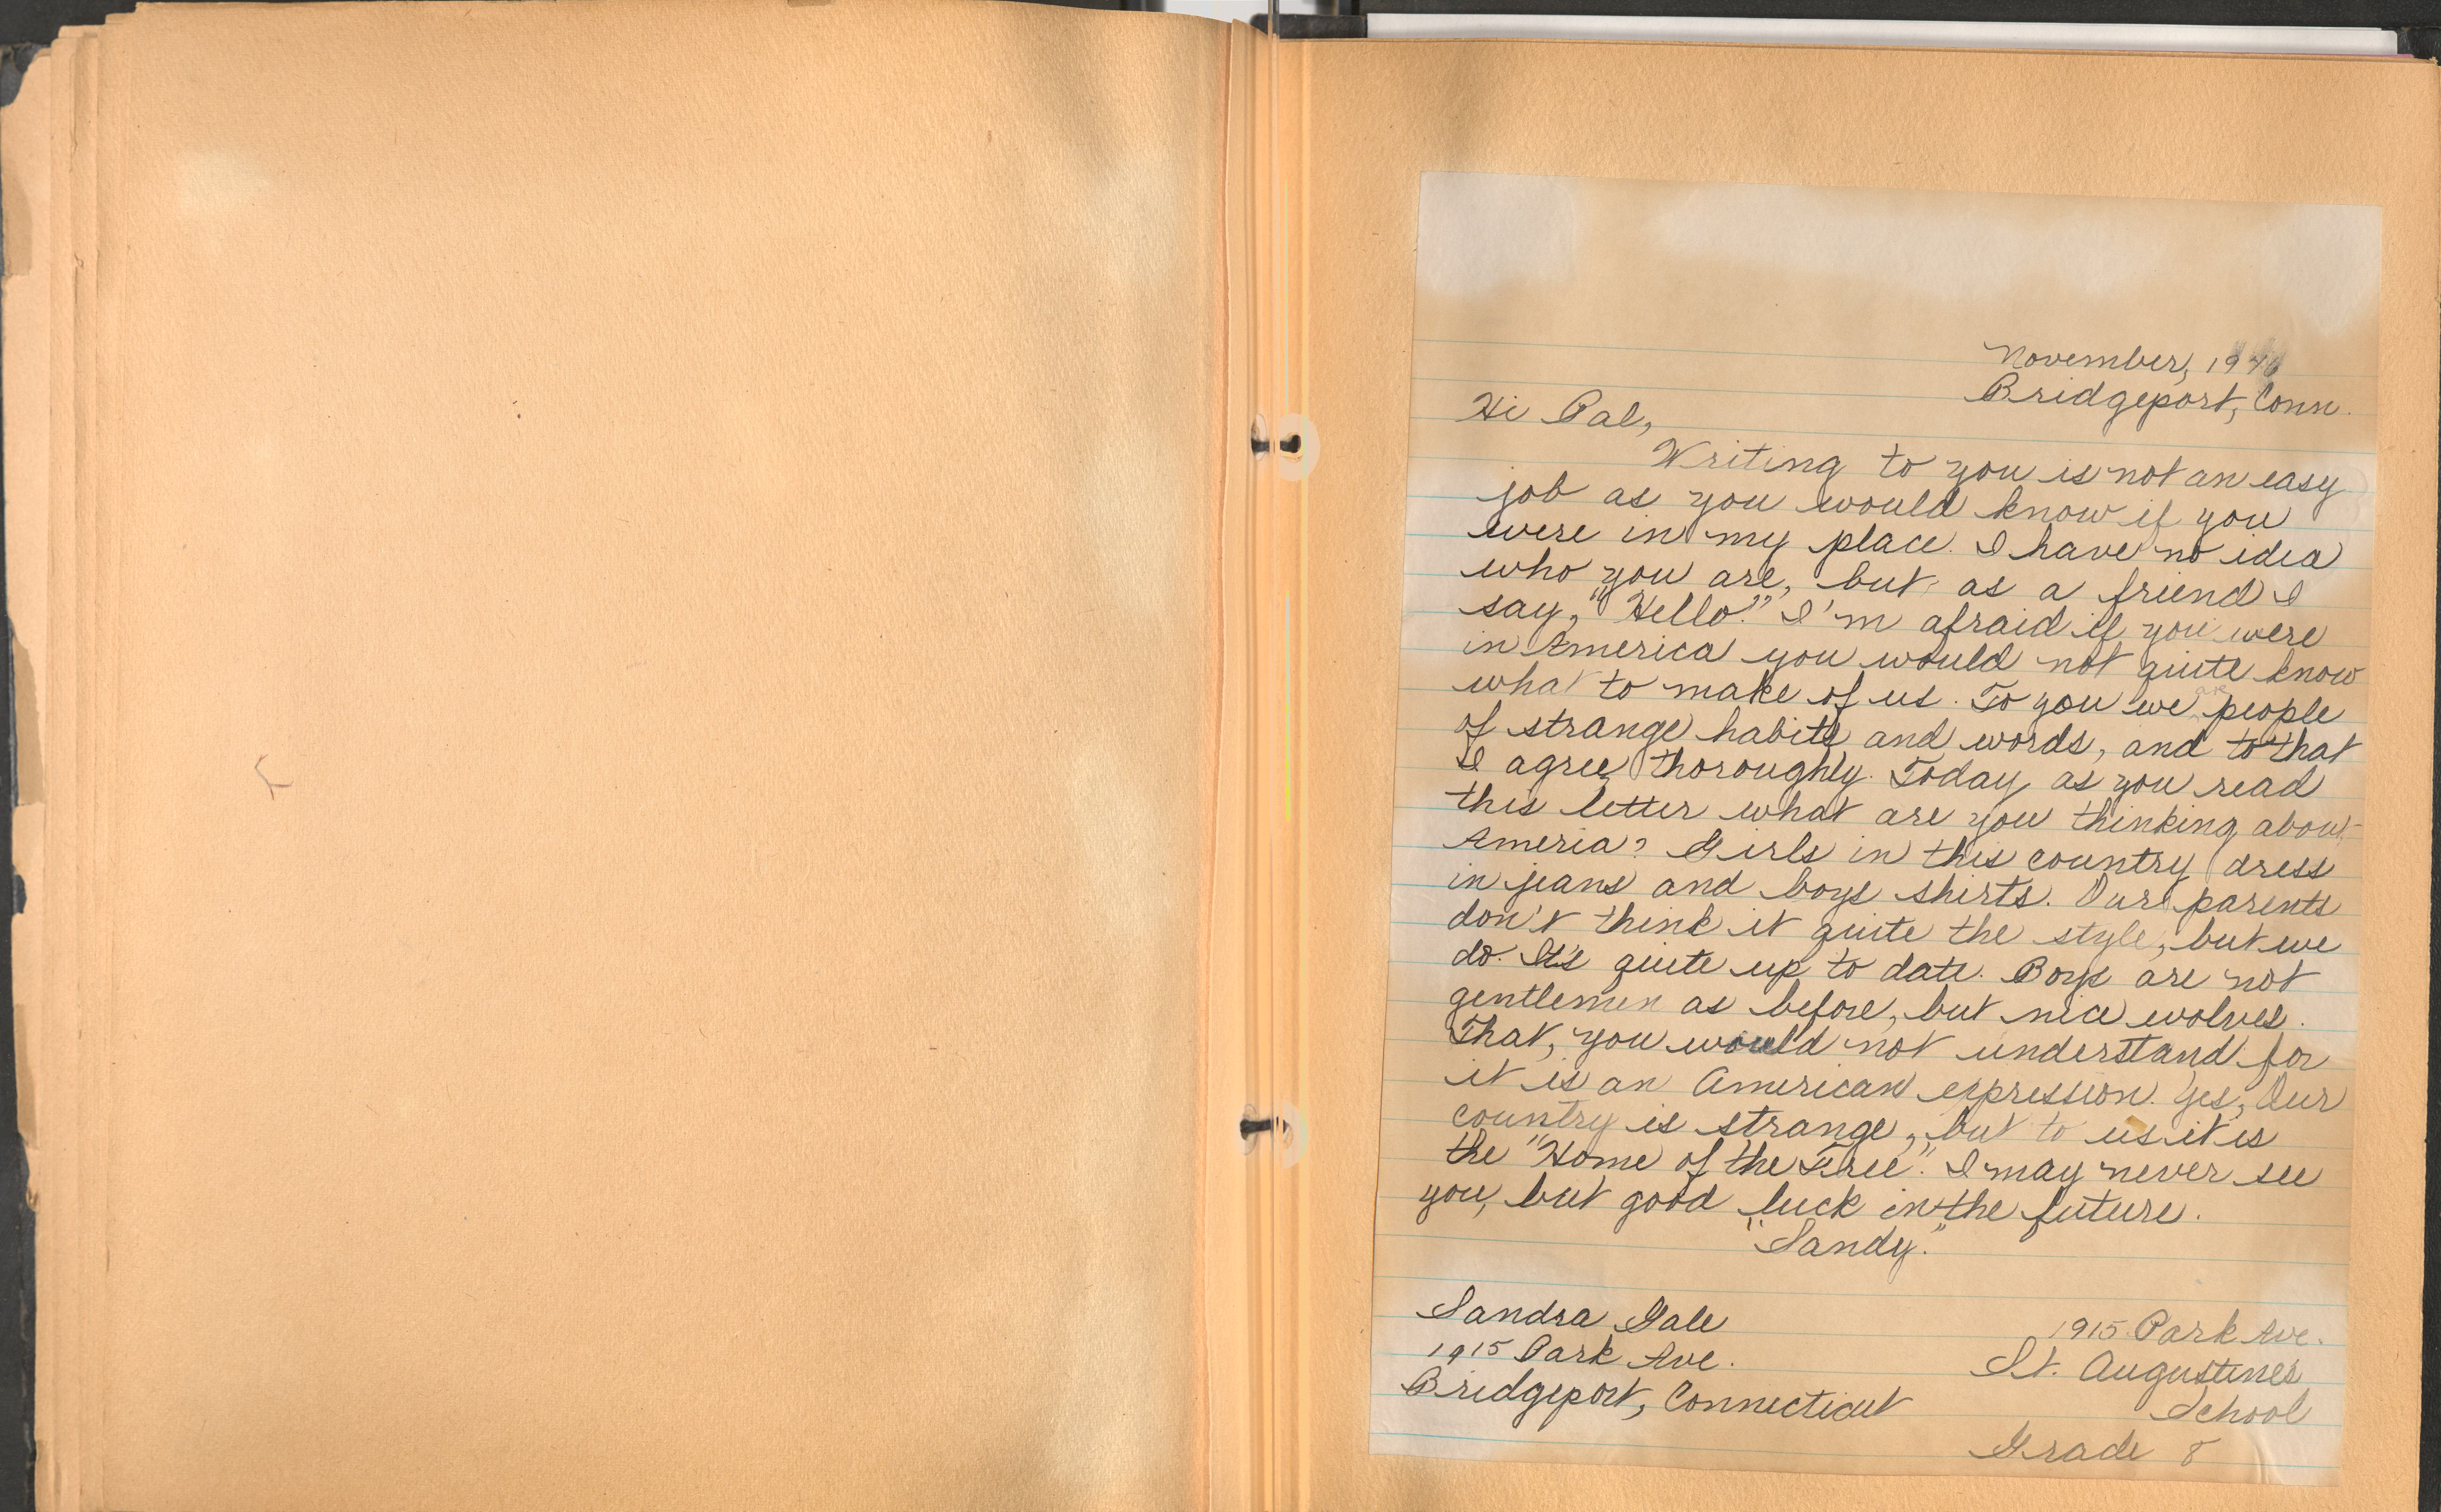 November, 1946
Bridgeport, Conn.
Hi Pal,
Writing to you is not an easy
job as you would know if you
were in my place. I have no idea
who you are, but as a friend I
say, "Hello." I'm afraid if you were
in America you would not quite know
what to make of us. To you we are people
of strange habits and words, and to that
I agree thoroughly. Today as you read
this letter what are you thinking about
Ameria? Girls in this country dress
in jeans and boys shirts. Our parents
don't think it quite the style, but we
do. It's quite up to date. Boys are not
gentlemen as before, but nice wolves.
That, you would not understand for
it is an American expression. Yes, Our
country is strange, but to us it is
the "Home of the Free". I may never see
you, but good luck in the future.
"Sandy."
Sandra Gale
1915 Park Ave.
Bridgeport, Connecticut
1915 Park Ave.
St. Augustine's
School
Grade 8